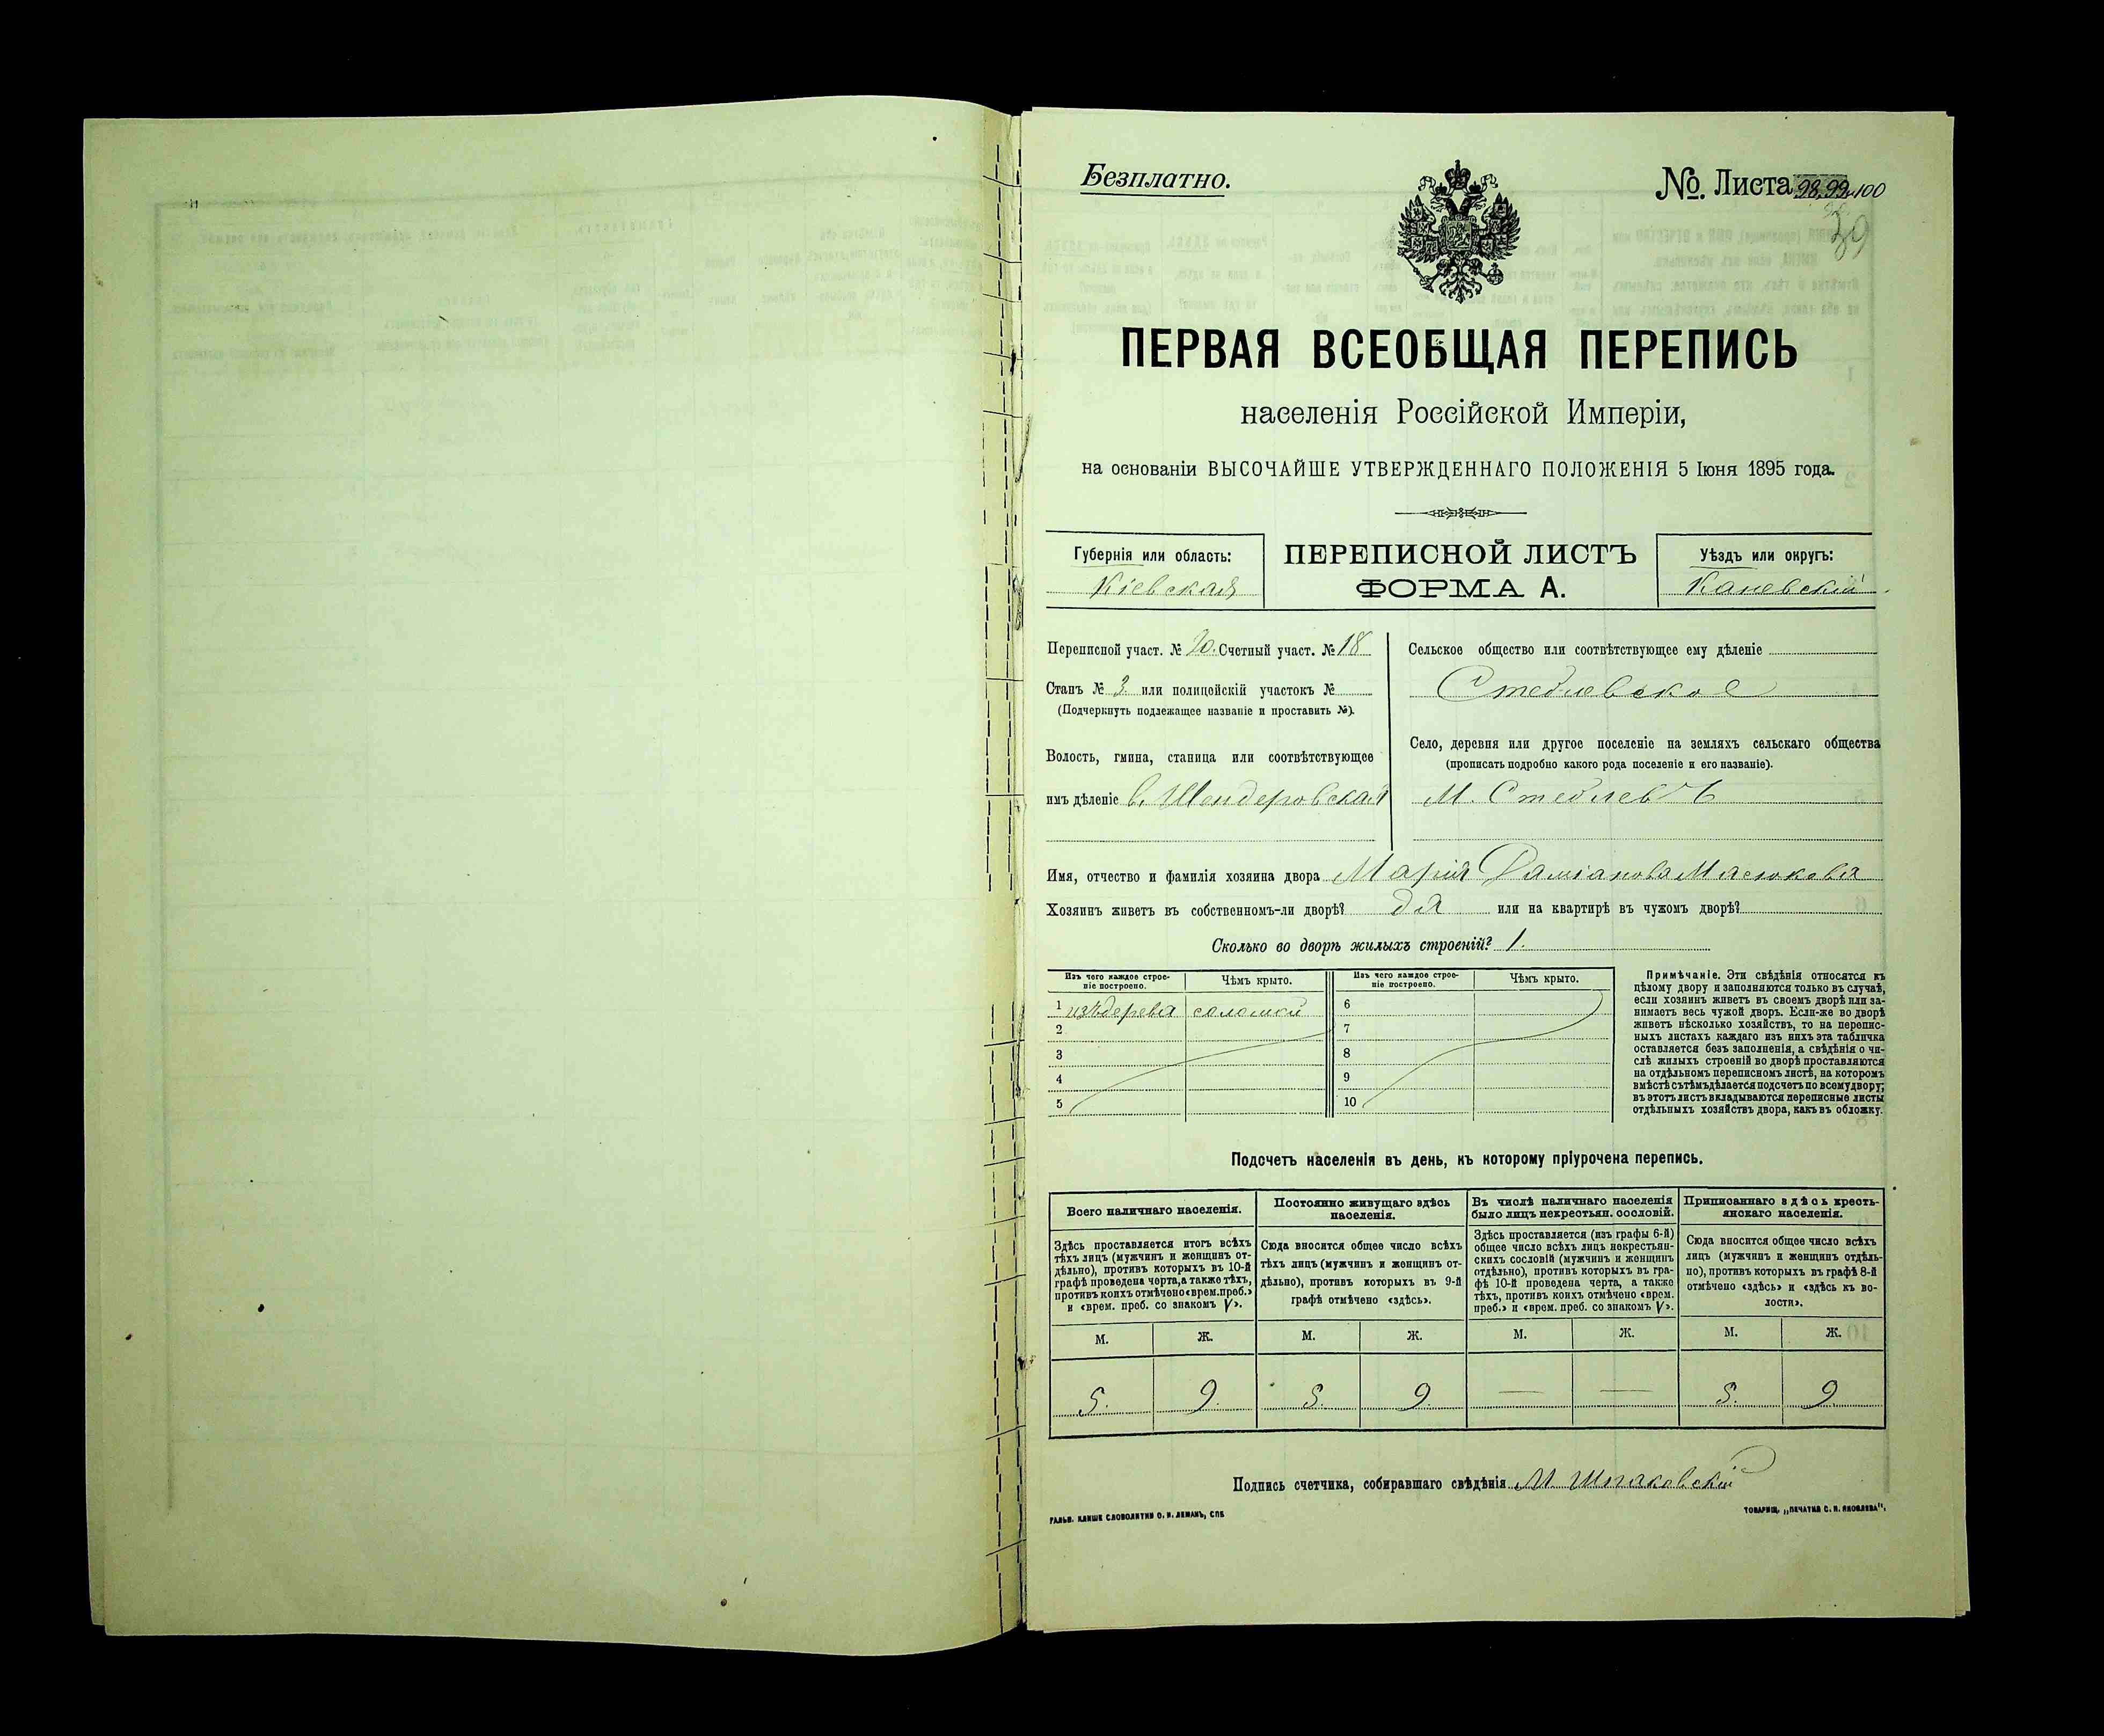 Безплатно.
№ Листа 98, 99 и 100
39
ПЕРВАЯ ВСЕОБЩАЯ ПЕРЕПИСЬ
населенія Россійской Имперіи,
на основаніи ВЫСОЧАЙШЕ УТВЕРЖДЕННАГО ПОЛОЖЕНІЯ 5 Іюня 1895 года.
Губернія или область:
Кіевская
ПЕРЕПИСНОЙ ЛИСТЪ
ФОРМА А.
Уѣздъ или округъ:
Каневскій
Переписной участ. № 20. Счетный участ. № 18
Станъ № 3 или полицейскій участокъ №
(Подчеркнуть подлежащее названіе и проставить №).
Волость, гмина, станица или соотвѣтствующее
имъ дѣленіе в. Шендеровская
Сельское общество или соотвѣтствующее ему дѣленіе
Стеблевское
Село, деревня или другое поселеніе на земляхъ сельскаго общества
(прописать подробно какого рода поселеніе и его названіе).
М. Стеблевъ
Имя, отчество и фамилія хозяина двора Марія Даміанова Масюкова
Хозяинъ живетъ въ собственномъ-ли дворѣ? да или на квартирѣ въ чужомъ дворѣ?
Сколько во дворѣ жилыхъ строеній? 1.
Изъ чего каждое строе-
ніе построено.
Чѣмъ крыто.
Изъ чего каждое строе-
ніе построено.
Чѣмъ крыто.
1 изъ дерева соломой 6
2 7
3 8
4 9
5 10
Примѣчаніе. Эти свѣдѣнія относятся къ
цѣлому двору и заполняются только въ случаѣ,
если хозяинъ живетъ въ своемъ дворѣ или за-
нимаетъ весь чужой дворъ. Если-же во дворѣ
живетъ нѣсколько хозяйствъ, то на перепис-
ныхъ листахъ каждаго изъ нихъ эта табличка
оставляется безъ заполненія, а свѣдѣнія о чи-
слѣ жилыхъ строеній во дворѣ проставляются
на отдѣльномъ переписномъ листѣ, на которомъ
вмѣстѣ съ тѣмъ дѣлается подсчетъ по всему двору;
въ этотъ листъ вкладываются переписные листы
отдѣльныхъ хозяйствъ двора, какъ въ обложку.
Подсчетъ населенія въ день, къ которому пріурочена перепись.
Всего наличнаго населенія.
Здѣсь проставляется итогъ всѣхъ
тѣхъ лицъ (мужчинъ и женщинъ от-
дѣльно), противъ которыхъ въ 10-й
графѣ проведена черта, а также тѣхъ,
противъ коихъ отмѣчено «врем. преб.»
и «врем. преб. со знакомъ V».
Постоянно живущаго здѣсь
населенія.
Сюда вносится общее число всѣхъ
тѣхъ лицъ (мужчинъ и женщинъ от-
дѣльно), противъ которыхъ въ 9-й
графѣ отмѣчено «здѣсь».
Въ числѣ наличнаго населенія
было лицъ некрестьян. сословій.
Здѣсь проставляется (изъ графы 6-й)
общее число всѣхъ лицъ некрестьян-
скихъ сословій (мужчинъ и женщинъ
отдѣльно), противъ которыхъ въ гра-
фѣ 10-й проведена черта, а также
тѣхъ, противъ коихъ отмѣчено «врем.
преб.» и «врем. преб. со знакомъ V».
Приписаннаго здѣсь кресть-
янскаго населенія.
Сюда вносится общее число всѣхъ
лицъ (мужчинъ и женщинъ отдѣль-
но), противъ которыхъ въ графѣ 8-й
отмѣчено «здѣсь» и «здѣсь къ во-
лости».
М. Ж. М. Ж. М. Ж. М. Ж.
5. 9. 5. 9. — — 5. 9.
Подпись счетчика, собиравшаго свѣдѣнія М. Шпаковскій
ГАЛЬВ. КЛИШЕ СЛОВОЛИТНИ О. И. ЛЕМАНЪ, СПБ
ТОВАРИЩ. „ПЕЧАТНЯ С. П. ЯКОВЛЕВА".